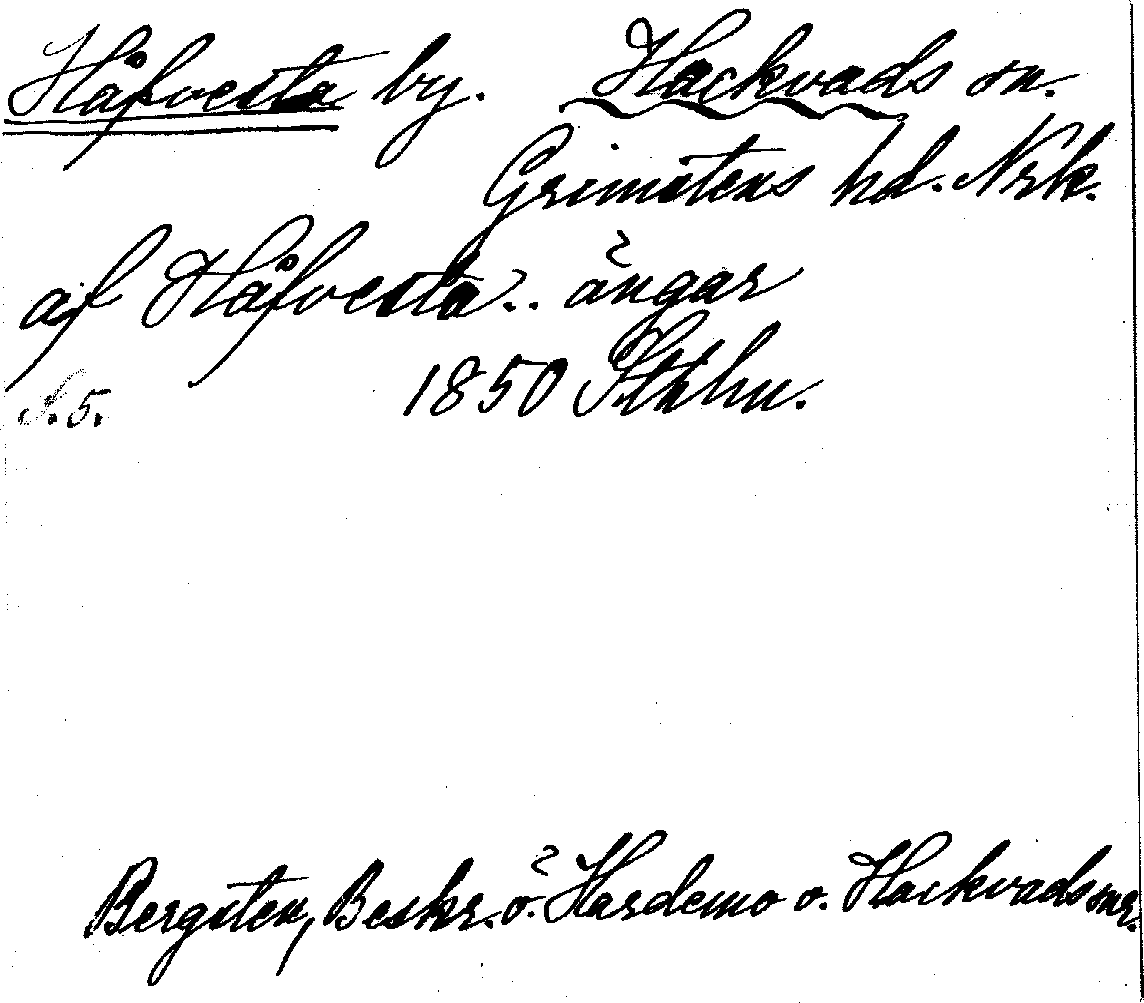 Håfvesta by. Hackvads sn.
Grimstens hd. Nrk.
af Håfvesta.. ängar
S. 5. 1850 Sthlm.
Bergsten, Beskr. ö. Hardemo o. Hackvads snr.